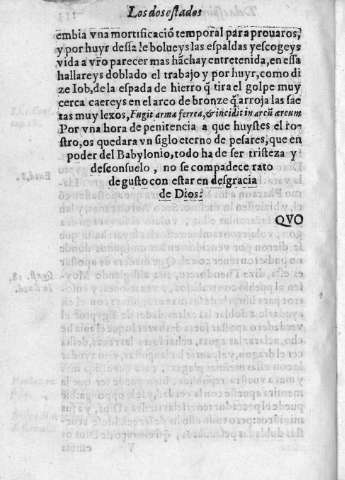 Los dos estados
embia vna mortificació temporal para prouaros,
y por huyr dessa le bolueys las espaldas yescogeys
vida a vr̃o parecer mas hãchay entretenida, en essa
hallareys doblado el trabajo y por huyr, como di
ze Iob, de la espada de hierro q̃ tira el golpe muy
cerca caereys en el arco de bronze q̃ arroja las sae
tas muy lexos, Fugit arma ferrea, & incidit in arcũ æreum
Por vna hora de penitencia a que huystes el ro-
stro, os quedara vn siglo eterno de pesares, que en
poder del Babylonio, todo ha de ser tristeza y
desconsuelo, no se compadece rato
de gusto con estar en desgracia
de Dios.
QVO